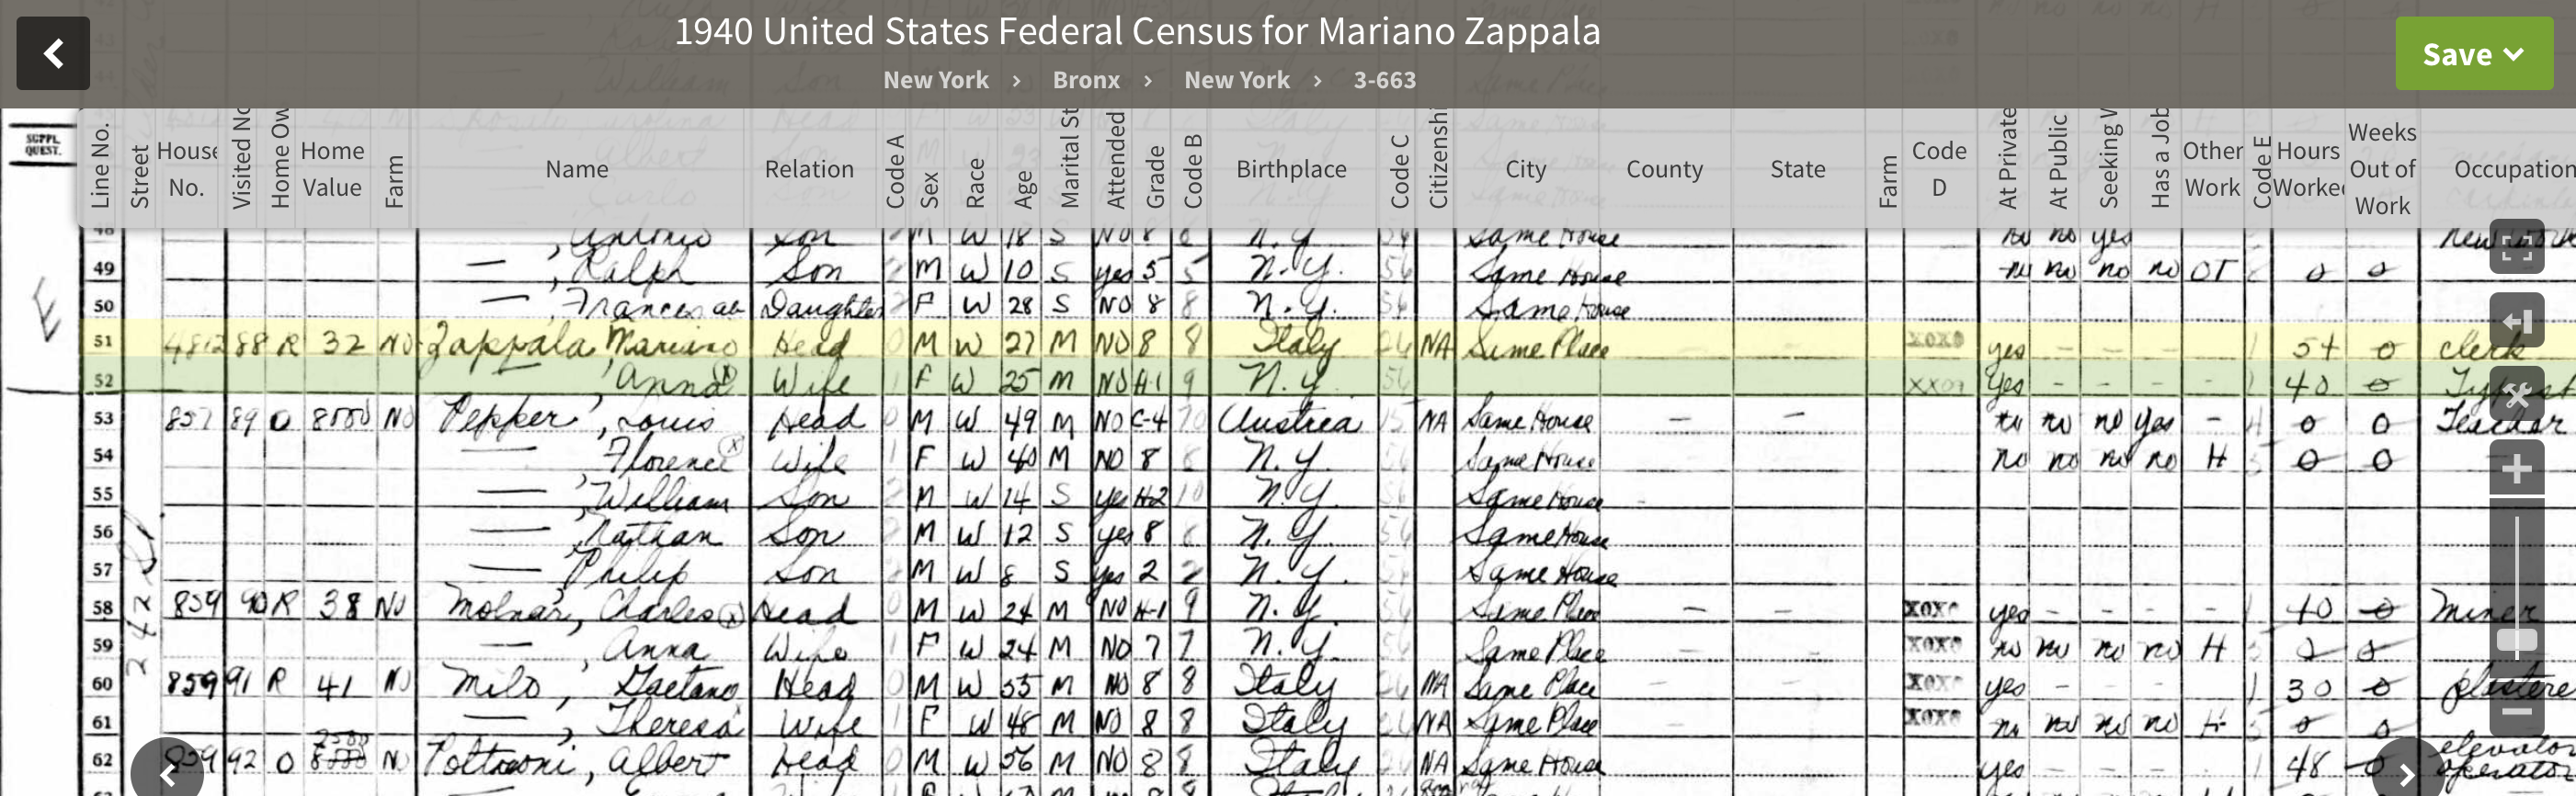 1940 United States Federal Census for Mariano Zappala
Save
New York › Bronx › New York › 3-663
SUPPL. QUEST.
Line No. Street House No. Visited No Home Ow Home Value Farm Name Relation Code A Sex Race Age Marital St Attended Grade Code B Birthplace Code C Citizenshi City County State Farm Code D At Private At Public Seeking W Has a Job Other Work Code E Hours Worke Weeks Out of Work Occupation
48 , Antonio Son 2 M W 18 S NO 8 N.Y. 56 Same House no no yes new work
49 — , Ralph Son 2 M W 10 S yes 5 5 N.Y. 56 Same House no no no no OT 0 0
50 — , Frances Daughter 2 F W 28 S NO 8 8 N.Y. 56 Same House
51 4812 88 R 32 NO Zappala Mariano Head 0 M W 27 M NO 8 8 Italy 26 NA Same Place — — X0X0 yes - - - 1 54 0 clerk
52 — , Anna Wife 1 F W 25 M NO H-1 9 N.Y. 56 XX09 Yes - - - - 1 40 0 Typist
53 857 89 O 8500 NO Pepper, Louis Head 0 M W 49 M NO C-4 70 Austria 15 NA Same House — — no no no yes - 4 0 0 Teacher
54 — , Florence Wife 1 F W 40 M NO 8 8 N.Y. 56 Same House no no no no H 5 0 0
55 — , William Son 2 M W 14 S yes H-2 10 N.Y. 56 Same House -
56 — , Nathan Son M W 12 S yes 8 N.Y. 56 Same House
57 — Philip Son M W 8 S yes 2 2 N.Y. 56 Same House
58 859 90 R 38 NO Molnar, Charles Head 0 M W 24 M NO H-1 9 N.Y. 56 Same Place — — X0X0 yes - - - - 1 40 0 Miner
59 — , Anna Wife 1 F W 24 M NO 7 7 N.Y. 56 Same Place — — X0X0 no no no no H 5 0 0
60 859 91 R 41 NO Milo, Gaetano Head 0 M W 55 M NO 8 8 Italy 26 NA Same Place — — X0X0 yes - - - 1 30 0 plastere
61 — , Theresa Wife 1 F W 48 M NO 8 8 Italy 26 NA Same Place — X0X0 no no no no H 5 0 0
62 859 92 O NO Albert Head 0 M W 56 M NO 8 8 Italy 26 NA Same House yes - - - - 1 48 0 elevator operator
242